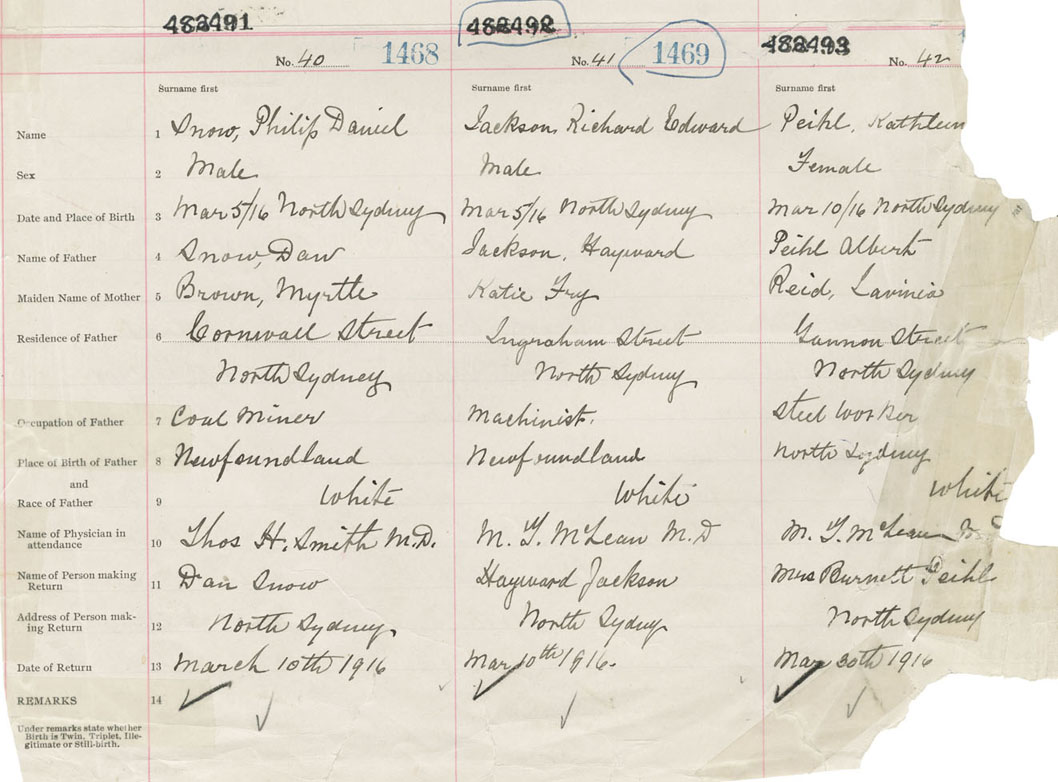 482491 482492 482493
No. 40 1468 No. 41 1469 No. 42
Surname first Surname first Surname first
Name 1 Snow, Philip Daniel Jackson, Richard Edward Peihl, Kathleen
Sex 2 Male Male Female
Date and Place of Birth 3 Mar 5/16 North Sydney Mar 5/16 North Sydney Mar 10/16 North Sydney
Name of Father 4 Snow, Dan Jackson, Hayward Peihl Albert
Maiden Name of Mother 5 Brown, Myrtle Katie Fry Reid, Lavinia
Residence of Father 6 Cornwall Street Ingraham Street Gannon Street
North Sydney North Sydney North Sydney
Occupation of Father 7 Coal Miner Machinist. Steel Worker
Place of Birth of Father 8 Newfoundland Newfoundland North Sydney
and
Race of Father 9 White White White
Name of Physician in
attendance 10 Thos H. Smith M.D. M. T. McLean M.D M. T. McLean
Name of Person making
Return 11 Dan Snow Hayward Jackson Mrs Burnett Peihl
Address of Person mak-
ing Return 12 North Sydney North Sydney North Sydney
Date of Return 13 March 10th 1916 Mar 10th 1916. Mar 30th 1916
REMARKS 14
Under remarks state whether
Birth is Twin, Triplet, Ille-
gitimate or Still-birth.